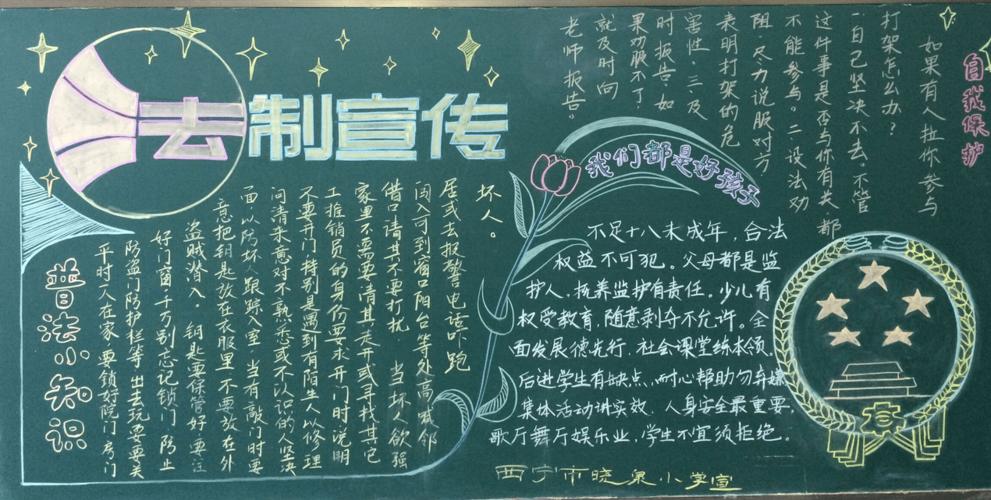 法制宣传
自我保护
如果有人拉你参与
打架怎么办?
一自己坚决不去、不管
这件事是否与你有关都
不能参与。二设法劝
阻、尽力说服对方
表明打架的危
害性。三、及
时报告、如
果劝服不了
就及时向
老师报告。
我们都是好孩子
不足十八未成年，合法
权益不可犯。父母都是监
护人，抚养监护自责任。少儿有
权受教育，随意剥夺不允许。全
面发展德先行，社会课堂练本领。
后进学生有缺点，耐心帮助勿弃嫌
集体活动讲实效，人身安全最重要，
歌厅舞厅娱乐业，学生不宜须拒绝。
普法小知识
平时一人在家 要锁好院门房门
防盗门防护栏等 出去玩要关
好门窗千万别忘记锁门 防止
盗贼潜入. 钥匙要保管好要注
意把钥匙放在衣服里不要放在外
面以防坏人跟踪入室 当有敲门时要
问清来意对不熟悉或不认识的人坚决
不要开门特别是遇到有陌生人以修理
工推销员的身份要求开门时说明
家里不需要请其走开或寻找其它
借口请其不要打扰 当坏人欲强
闯入可到窗口阳台等处高喊邻
居或去报警电话吓跑
坏人.
西宁市晓泉小学宣